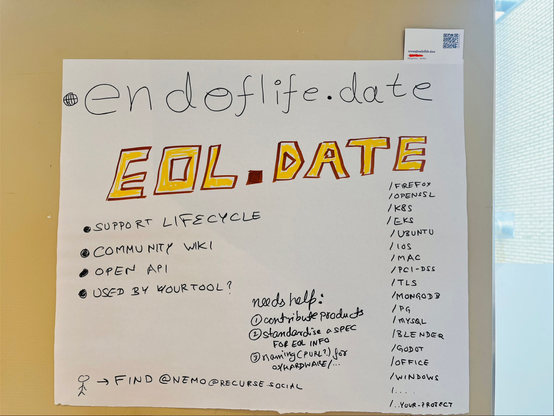 endoflife.date
EOL.DATE
SUPPORT LIFECYCLE
COMMUNITY WIKI
OPEN API
USED BY YOUR TOOL?
needs help:
① contribute products
② standardise a SPEC
FOR EOL INFO
③ naming (PURL?) for
OS/HARDWARE/...
→ FIND @NEMO@RECURSE.SOCIAL
/FIREFOX
/OPENSSL
/K8S
/EKS
/UBUNTU
/IOS
/MAC
/PCI-DSS
/TLS
/MONGODB
/PG
/MYSQL
/BLENDER
/GODOT
/OFFICE
/WINDOWS
/....
/..YOUR-PROJECT